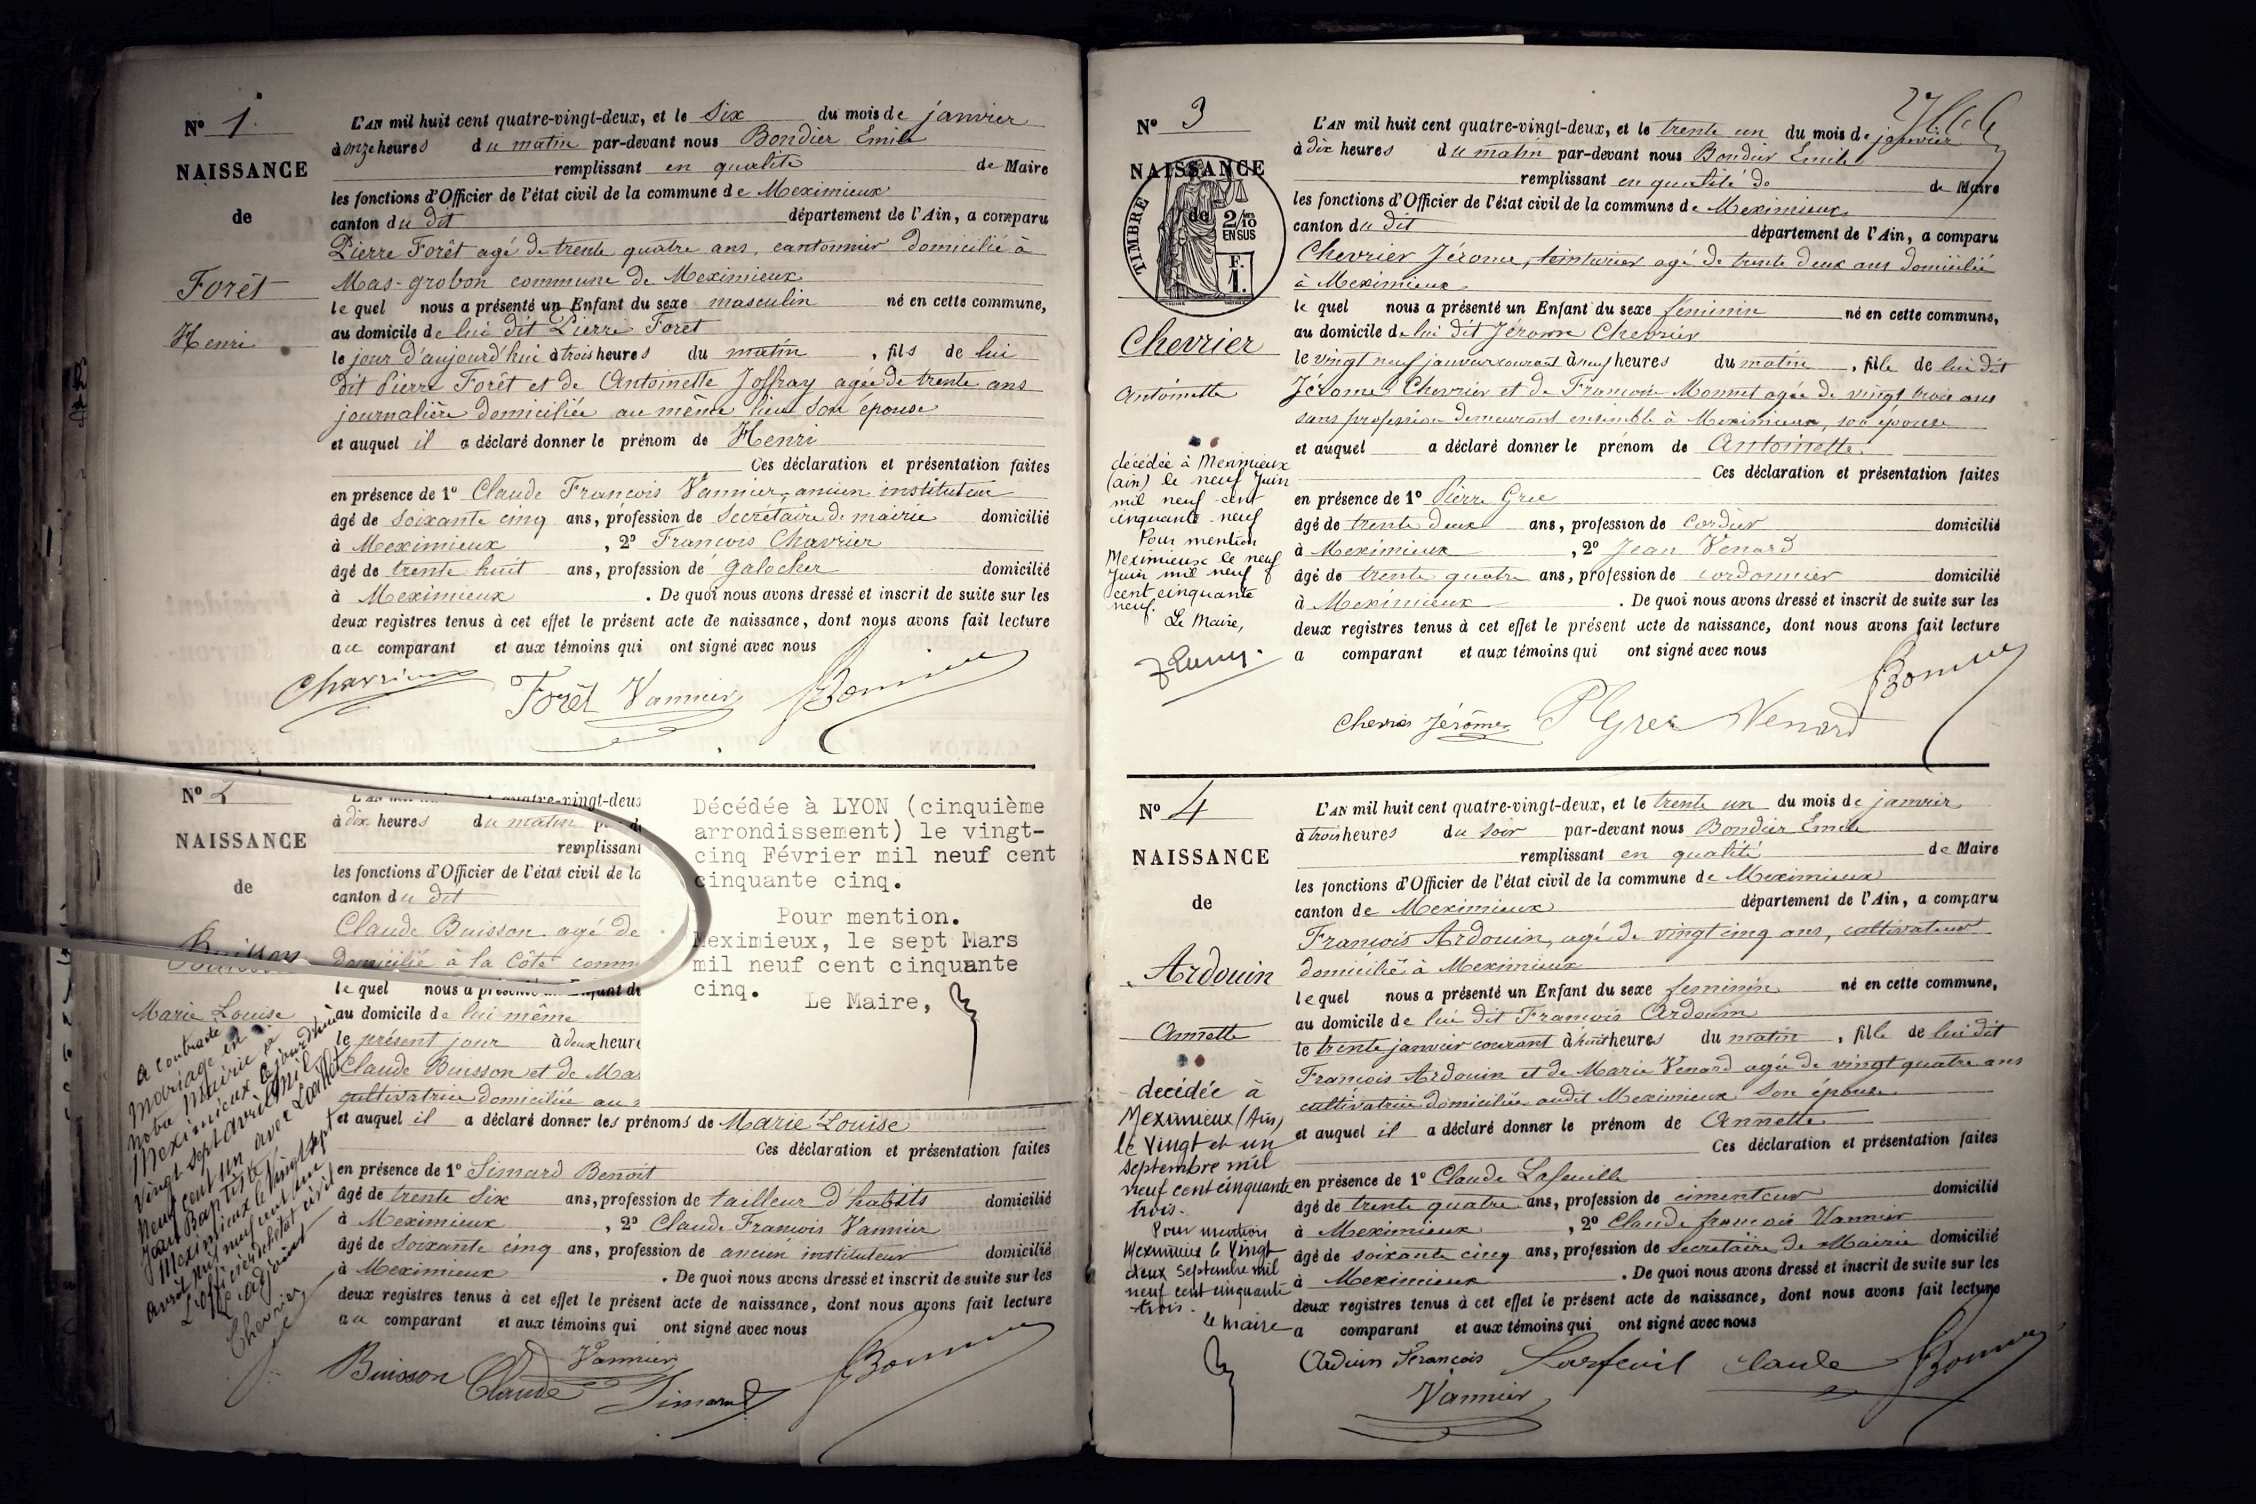 N° 1.
NAISSANCE
de
Forêt
Henri
L'AN mil huit cent quatre-vingt-deux, et le Six du mois de janvier
à onze heures du matin par-devant nous Bondier Emile
remplissant en qualité de Maire
les fonctions d'Officier de l'état civil de la commune de Meximieux
canton du dit département de l'Ain, a comparu
Pierre Forêt agé de trente quatre ans, cantonnier domicilié à
Mas-grobon commune de Meximieux
le quel nous a présenté un Enfant du sexe masculin né en cette commune,
au domicile de lui dit Pierre Forêt
le jour d'aujourd'hui à trois heures du matin, fils de lui
dit Pierre Forêt et de Antoinette Joffray agée de trente ans
journalière domiciliée au même lieu son épouse
et auquel il a déclaré donner le prénom de Henri
Ces déclaration et présentation faites
en présence de 1° Claude François Vannier, ancien instituteur
âgé de soixante cinq ans, profession de Secrétaire de mairie domicilié
à Meximieux, 2° François Chavrier
âgé de trente huit ans, profession de galocher domicilié
à Meximieux. De quoi nous avons dressé et inscrit de suite sur les
deux registres tenus à cet effet le présent acte de naissance, dont nous avons fait lecture
au comparant et aux témoins qui ont signé avec nous
Chavrier Forêt Vannier
N° 2
NAISSANCE
de
Buisson
Marie Louise
a contracté
mariage en
notre mairie à
Meximieux aujourd'hui
vingt sept avril mil
neuf cent un avec
Jean Baptiste
Meximieux le vingt sept
avril mil neuf cent un
L'officier de l'état civil
Le adjoint
Chevrier
à dix heures du matin
remplissant
les fonctions d'Officier de l'état civil de la
canton du dit
Claude Buisson agé de
domicilié à la Côte comm
le quel nous a
au domicile de lui même
le présent jour à deux heure
Claude Buisson et de Ma
cultivatrice domiciliée au
Décédée à LYON (cinquième
arrondissement) le vingt-
cinq Février mil neuf cent
cinquante cinq.
Pour mention.
Meximieux, le sept Mars
mil neuf cent cinquante
cinq.
Le Maire,
et auquel il a déclaré donner les prénoms de Marie Louise
Ces déclaration et présentation faites
en présence de 1° Simard Benoit
âgé de trente six ans, profession de tailleur d'habits domicilié
à Meximieux, 2° Claude François Vannier
âgé de soixante cinq ans, profession de ancien instituteur domicilié
à Meximieux. De quoi nous avons dressé et inscrit de suite sur les
deux registres tenus à cet effet le présent acte de naissance, dont nous avons fait lecture
au comparant et aux témoins qui ont signé avec nous
Buisson Claude Vannier Simard
N° 3
NAISSANCE
de
TIMBRE
2/10 EN SUS
F. 1.
Chevrier
Antoinette
décédée à Meximieux
(ain) le neuf Juin
mil neuf cent
cinquante neuf
Pour mention
Meximieux le neuf
Juin mil neuf
cent cinquante
neuf.
Le Maire,
L'AN mil huit cent quatre-vingt-deux, et le trente un du mois de janvier
à dix heures du matin par-devant nous Bondier Emile
remplissant en qualité de de Maire
les fonctions d'Officier de l'état civil de la commune de Meximieux
canton du dit département de l'Ain, a comparu
Chevrier Jérome, teinturier agé de trente deux ans domicilié
à Meximieux
le quel nous a présenté un Enfant du sexe féminin né en cette commune,
au domicile de lui dit Jérome Chevrier
le vingt neuf janvier courant à neuf heures du matin, fille de lui dit
Jérome Chevrier et de Françoise Monnet agée de vingt trois ans
sans profession demeurant ensemble à Meximieux, son épouse
et auquel a déclaré donner le prénom de Antoinette.
Ces déclaration et présentation faites
en présence de 1° Pierre Gree
âgé de trente deux ans, profession de cordier domicilié
à Meximieux, 2° Jean Venard
âgé de trente quatre ans, profession de cordonnier domicilié
à Meximieux. De quoi nous avons dressé et inscrit de suite sur les
deux registres tenus à cet effet le présent acte de naissance, dont nous avons fait lecture
a comparant et aux témoins qui ont signé avec nous
Chevrier Jérôme Venard
N° 4
NAISSANCE
de
Ardouin
Annette
decédée à
Meximieux (Ain)
le Vingt et un
septembre mil
neuf cent cinquante
trois.
Pour mention
Meximieux le Vingt
deux Septembre mil
neuf cent cinquante
trois.
le maire
L'AN mil huit cent quatre-vingt-deux, et le trente un du mois de janvier
à trois heures du soir par-devant nous Bondier Emile
remplissant en qualité de Maire
les fonctions d'Officier de l'état civil de la commune de Meximieux
canton de Meximieux département de l'Ain, a comparu
François Ardouin, agé de vingt cinq ans, cultivateur
domicilié à Meximieux
le quel nous a présenté un Enfant du sexe féminin né en cette commune,
au domicile de lui dit François Ardouin
le trente janvier courant à huit heures du matin, fille de lui dit
François Ardouin et de Marie Venard agée de vingt quatre ans
cultivatrice domiciliée audit Meximieux son épouse
et auquel il a déclaré donner le prénom de Annette
Ces déclaration et présentation faites
en présence de 1° Claude Lafeuille
âgé de trente quatre ans, profession de cimenteur domicilié
à Meximieux, 2° Claude françois Vannier
âgé de soixante cinq ans, profession de Secrétaire de Mairie domicilié
à Meximieux. De quoi nous avons dressé et inscrit de suite sur les
deux registres tenus à cet effet le présent acte de naissance, dont nous avons fait lecture
a comparant et aux témoins qui ont signé avec nous
Ardiun François Claude
Vannier